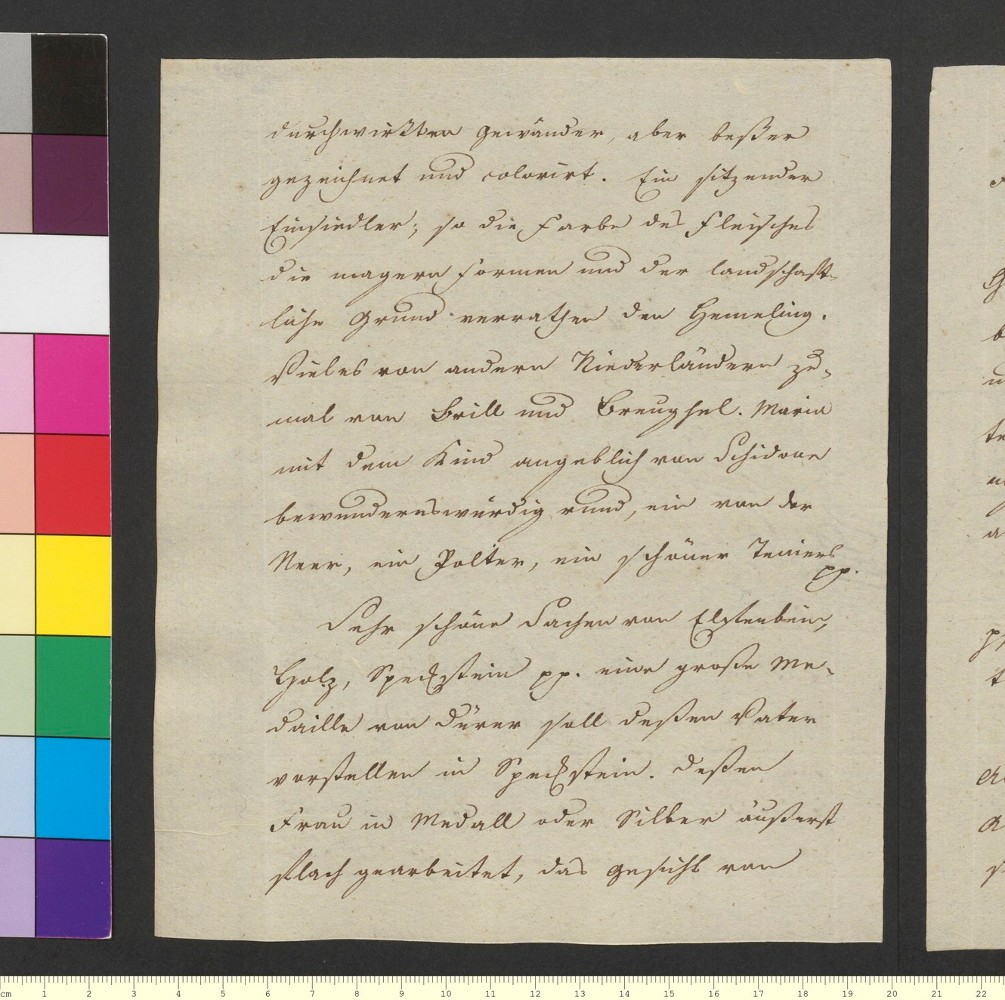 durchwirkten Gewänder, aber beßer
gezeichnet und colorirt. Ein sitzender
Einsiedler; so die Farbe des Fleisches
die magern Formen und der landschaft-
liche Grund verrathen den Hemeling.
Vieles von andern Niederländern zu-
mal von Brill und Breughel. Maria
mit dem Kind angeblich von Schidone
bewundernswürdig rund, ein von der
Neer, ein Potter, ein schöner Teniers
pp.
Sehr schöne Sachen von Elfenbein,
Holz, Speckstein pp. eine große Me-
daille von Dürer soll deßen Vater
vorstellen in Speckstein. Deßen
Frau in Medall oder Silber äußerst
flach gearbeitet, das Gesicht von